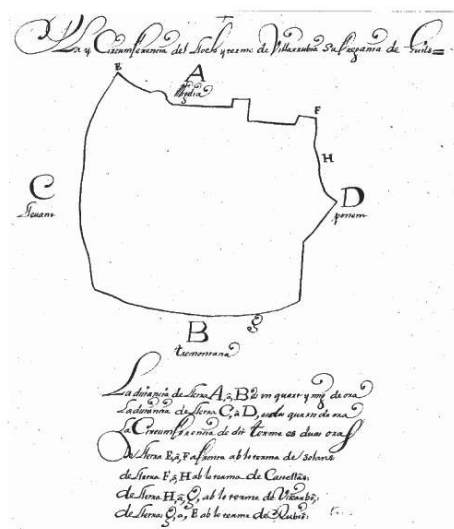 La y Circumferencia del Lloch y terme de Villarrubia Sufragania de
E
A
Mitgdia
F
H
C
llevant
D
ponent
B
tremontana
G
La distancia de lletra A, a, B, es un quart y mitg de ora
La distancia de lletra C, a, D, es dos quarts de ora
La Circumferencia de dit terme es duas oras
De lletra E, a, F afronta ab lo terme de Solans;
de lletra F, a, H ab lo terme de Castellar;
de lletra H, a, G, ab lo terme de
de lletra G, a, E ab lo terme de Rubió;